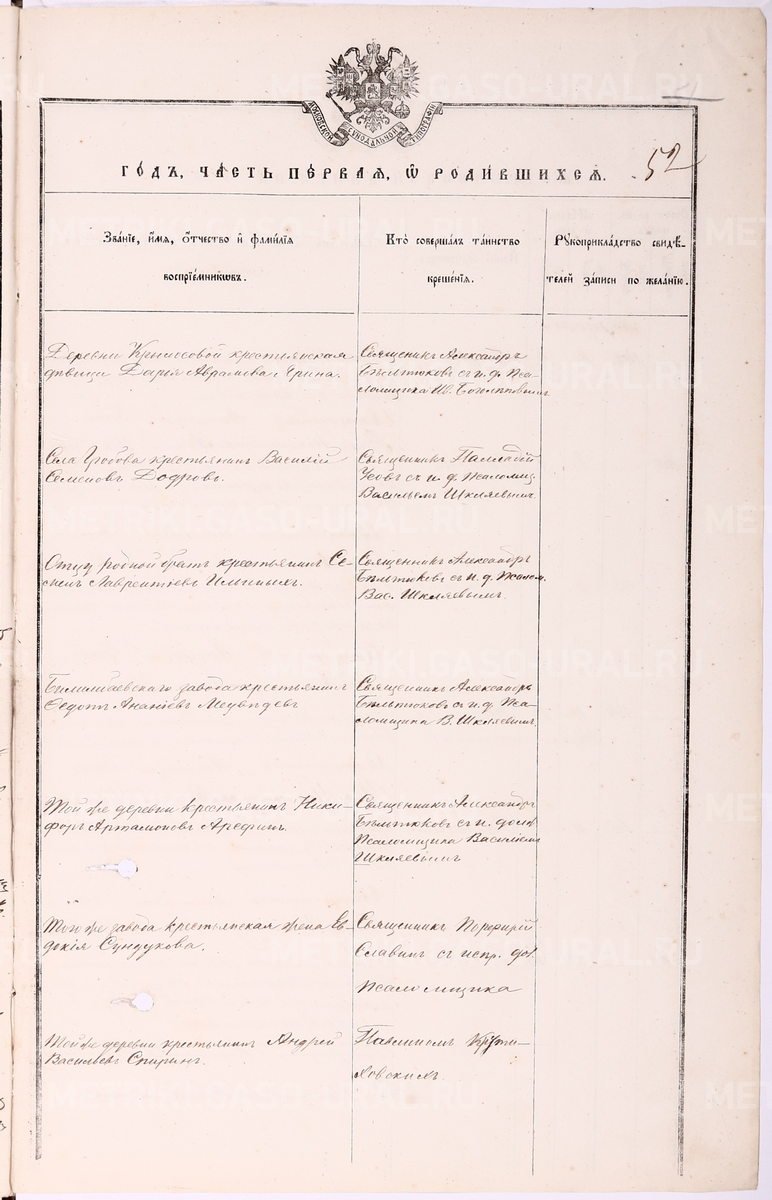 МОСКОВСКОЙ СѴНОДАЛЬНОЙ ТИПОГРАФІИ
52
ГО́ДЪ, ЧА́СТЬ ПЕ́РВАЯ, Ѡ҆ РОДИ́ВШИХСЯ.
Зва́ніе, и҆́мя, ѻ҆́тчество и҆ фами́лія
воспріе́мникѡвъ.
Кто̀ соверша́лъ та́инство
креще́нія.
Рꙋкоприкла́дство свидѣ́-
телей за́писи по жела́нію.
Деревни Крылосовой крестьянская
дѣвица Дарья Аврамова Ярина.
Священникъ Александръ
Бѣльтюковъ съ и. д. Пса-
ломщика Ив. Боголѣповымъ
Села Гробова крестьянинъ Василій
Семеновъ Бодровъ.
Священникъ Палладій
Усовъ съ и. д. Псаломщ.
Васильемъ Шкляевымъ.
Отцу родной братъ крестьянинъ Се-
менъ Лаврентіевъ Ильиныхъ.
Священникъ Александръ
Бѣльтюковъ съ и. д. Псалом.
Вас. Шкляевымъ.
Билимбаевскаго завода крестьянинъ
Ѳедотъ Ананіевъ Медвѣдевъ
Священникъ Александръ
Бѣльтюковъ съ и. д. Пса-
ломщика В. Шкляевымъ.
Той же деревни крестьянинъ Ники-
форъ Артамоновъ Арефинъ.
Священникъ Александръ
Бѣльтюковъ съ и. долж.
Псаломщика Василіемъ
Шкляевымъ
Того же завода крестьянская жена Ев-
докія Сундукова.
Священникъ Порфирій
Славинъ съ испр. дол.
Псаломщика
Той же деревни крестьянинъ Андрей
Васильевъ Спиринъ.
Павлиномъ Крути-
ховскимъ.
METRIKI.GASO-URAL.RU